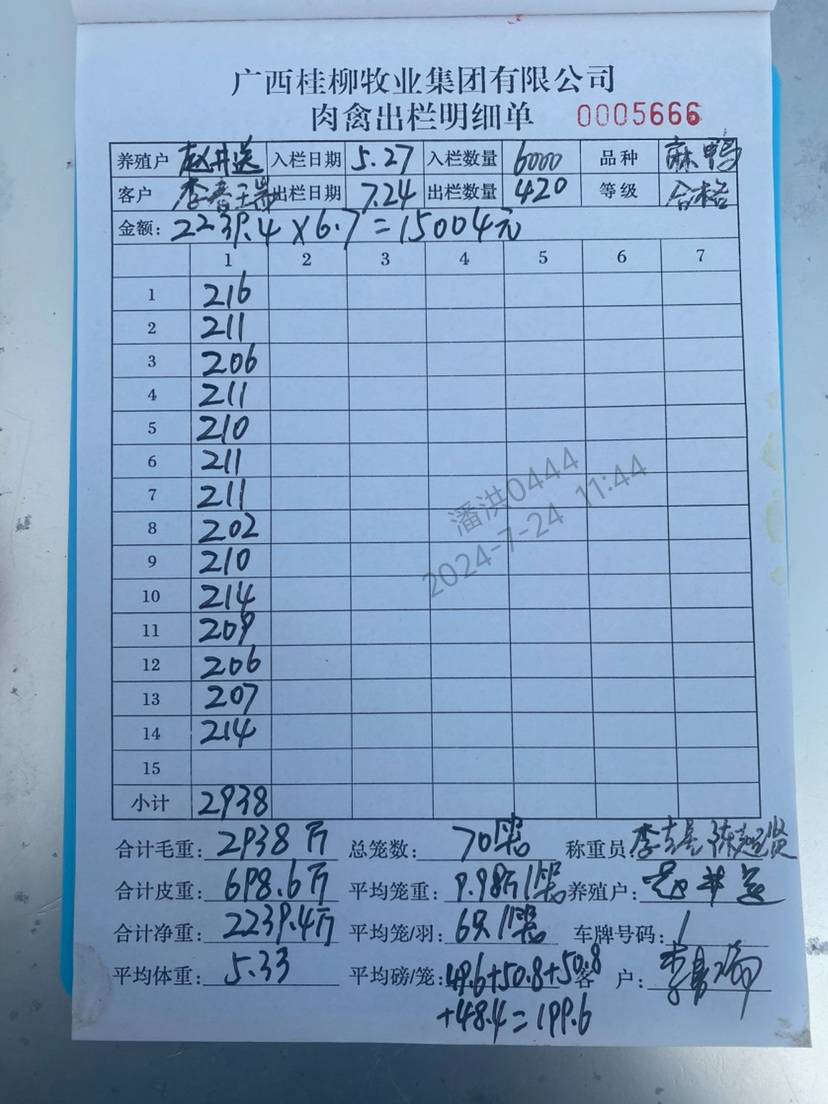 广西桂柳牧业集团有限公司
肉禽出栏明细单 0005666
养殖户 赵井送 入栏日期 5.27 入栏数量 6000 品种 麻鸭
客户 出栏日期 7.24 出栏数量 420 等级 合格
金额: 2239.4×6.7=15004元
1 2 3 4 5 6 7
1 216
2 211
3 206
4 211
5 210
6 211
7 211
8 202
9 210
10 214
11 209
12 206
13 207
14 214
15
小计 2938
潘洪0444
2024-7-24 11:44
合计毛重: 2938斤 总笼数: 70笼 称重员:
合计皮重: 698.6斤 平均笼重: 9.98斤/笼 养殖户:
合计净重: 2239.4斤 平均笼/羽: 6只/笼 车牌号码: /
平均体重: 5.33 平均磅/笼: 49.6+50.8+50.8 客户:
+48.4=199.6